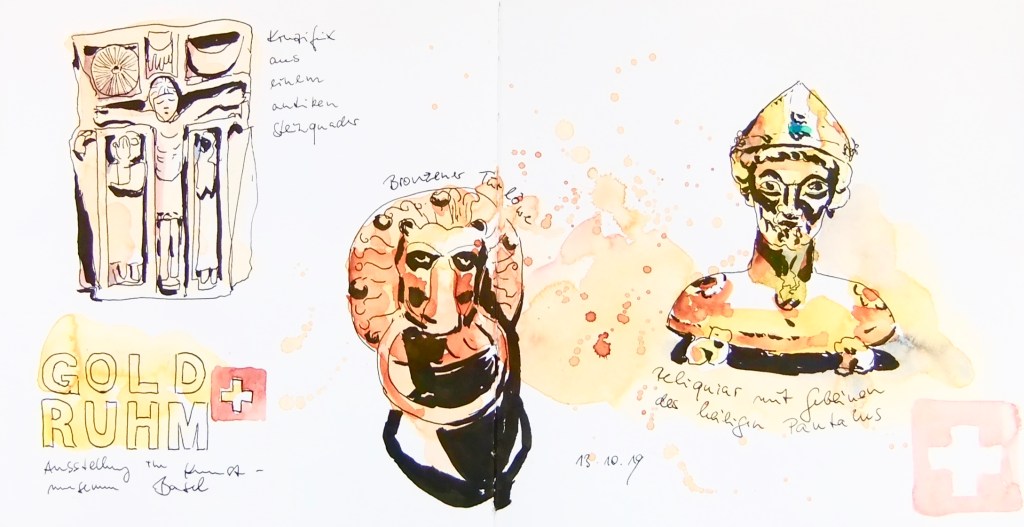 Kruzifix
aus
einem
antiken
Steinquader
Bronzener Türlöwe
Reliquiar mit Gebeinen
des heiligen Pantalus
GOLD
RUHM
Ausstellung im Kunst-
museum Basel
13.10.19